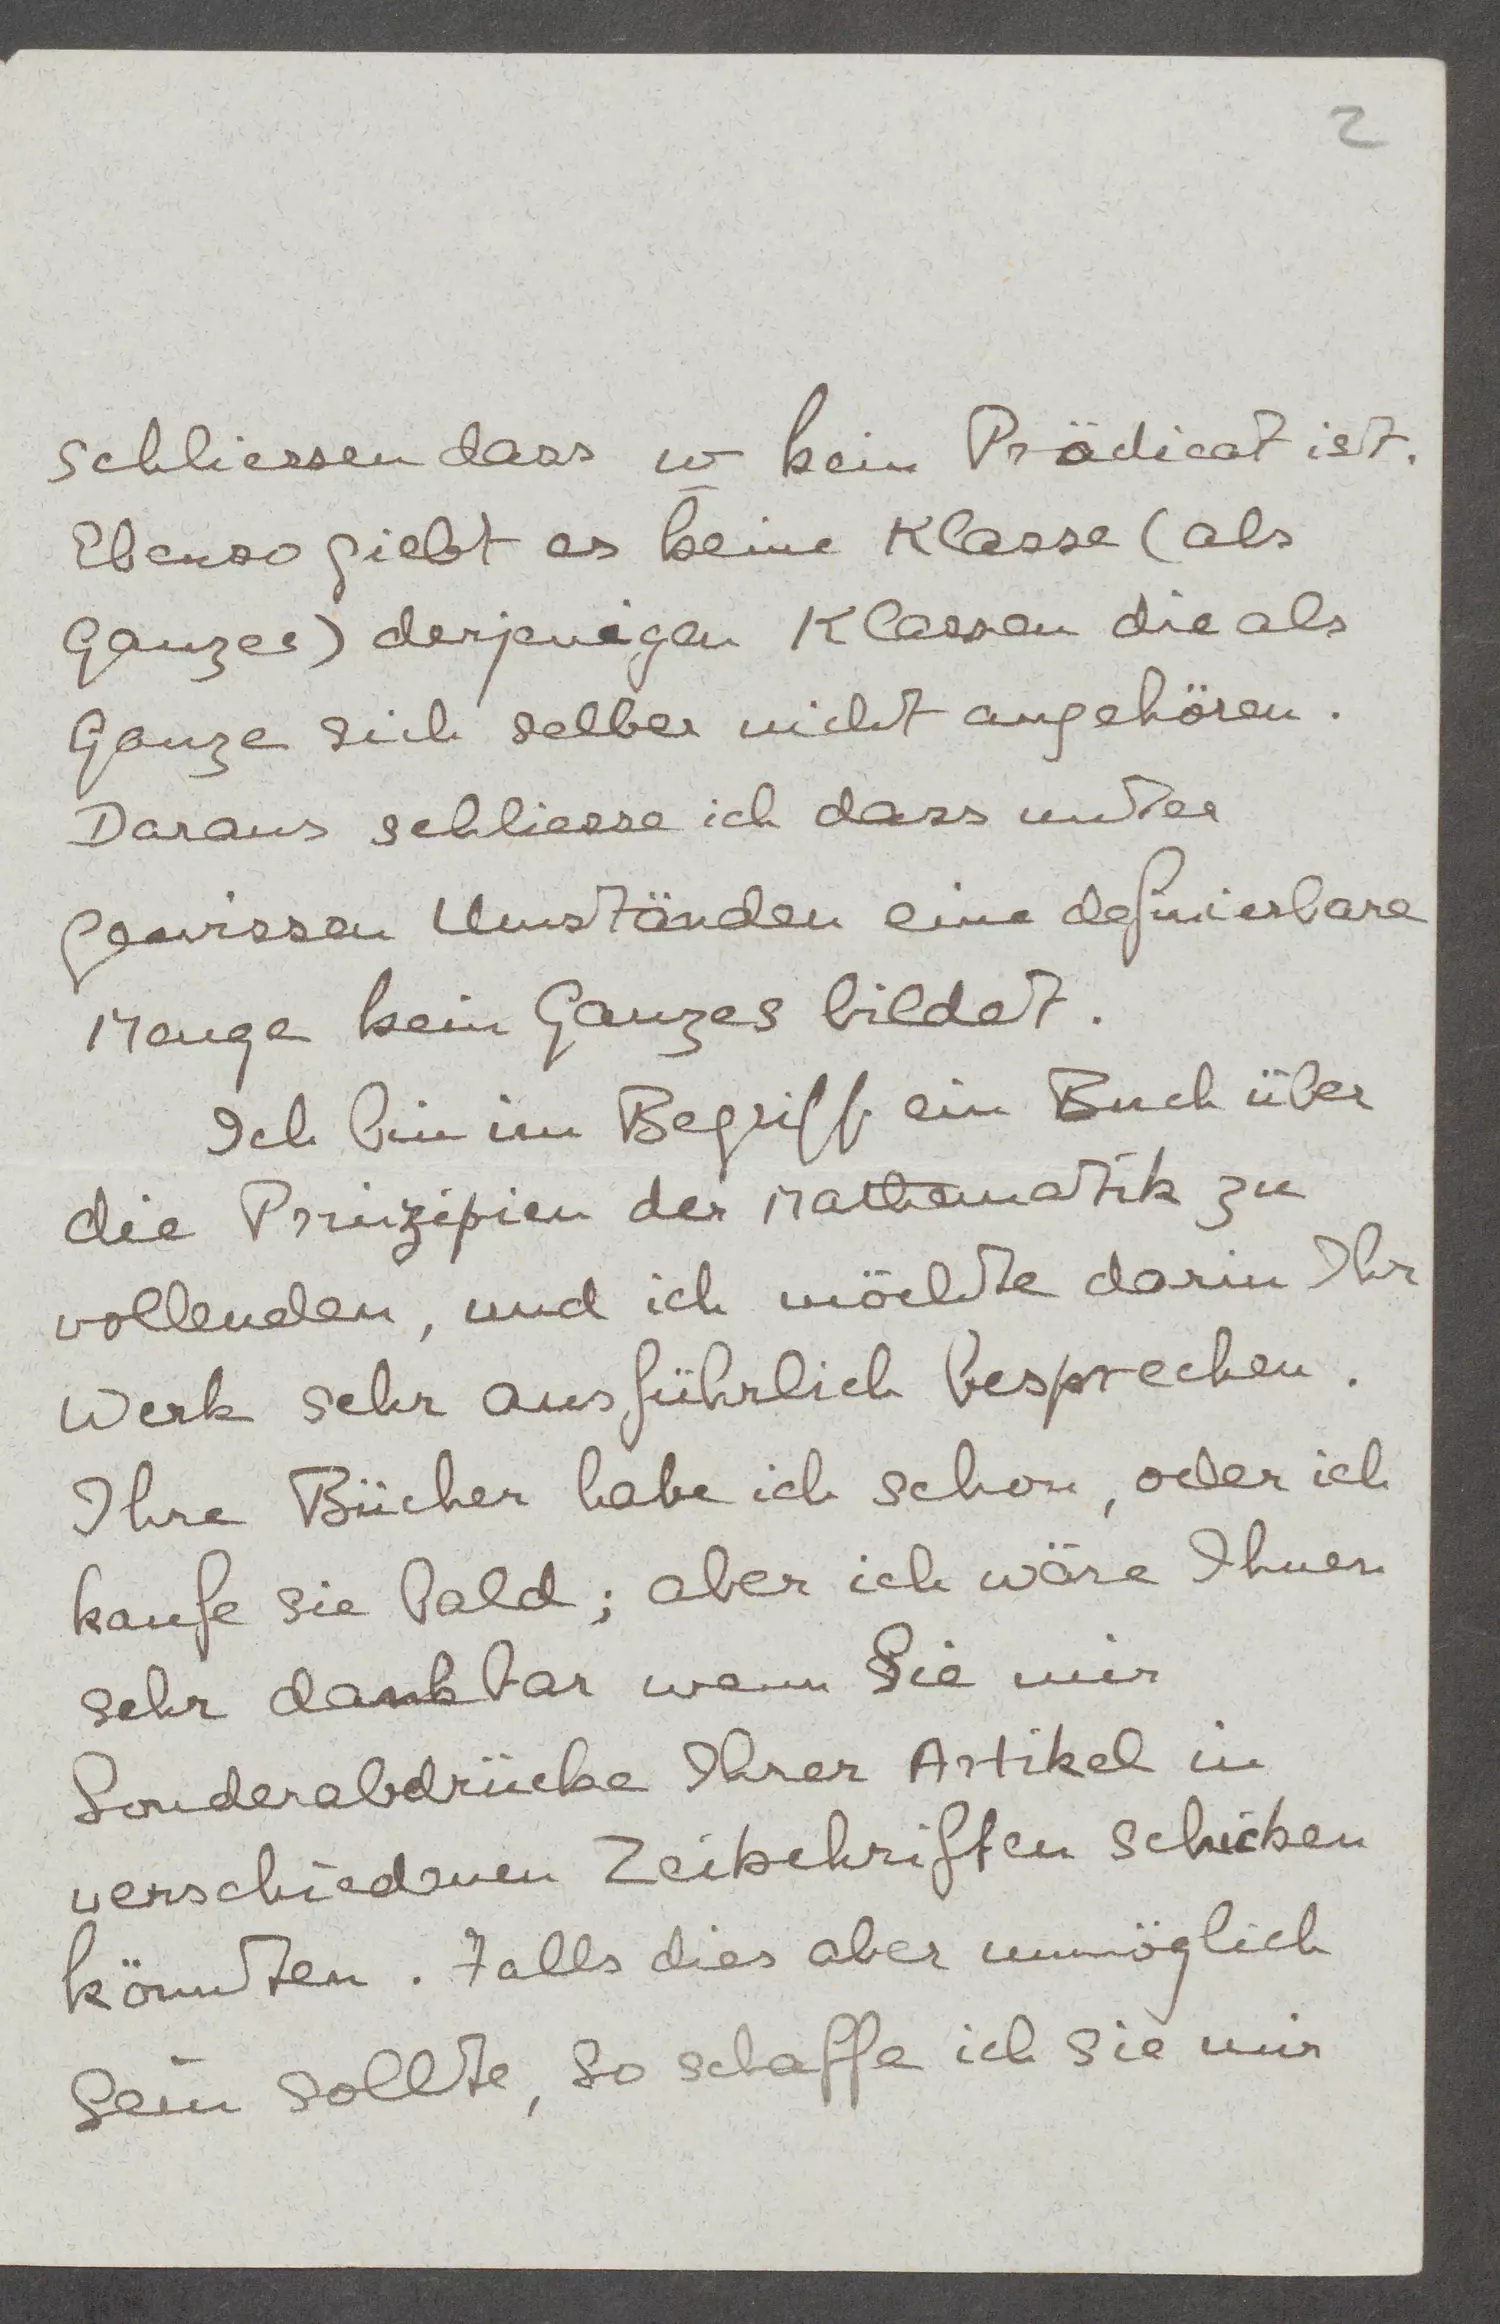 2
schliessen dass w kein Prädicat ist.
Ebenso giebt es keine Klasse (als
Ganzes) derjenigen Klassen die als
Ganze sich selber nicht angehören.
Daraus schliesse ich dass unter
gewissen Umständen eine definierbare
Menge kein Ganzes bildet.
Ich bin im Begriff ein Buch über
die Prinzipien der Mathematik zu
vollenden, und ich möchte darin Ihr
Werk sehr ausführlich besprechen.
Ihre Bücher habe ich schon, oder ich
kaufe sie bald; aber ich wäre Ihnen
sehr dankbar wenn Sie mir
Sonderabdrücke Ihrer Artikel in
verschiedenen Zeitschriften schicken
könnten. Falls dies aber unmöglich
sein sollte, so schaffe ich sie mir